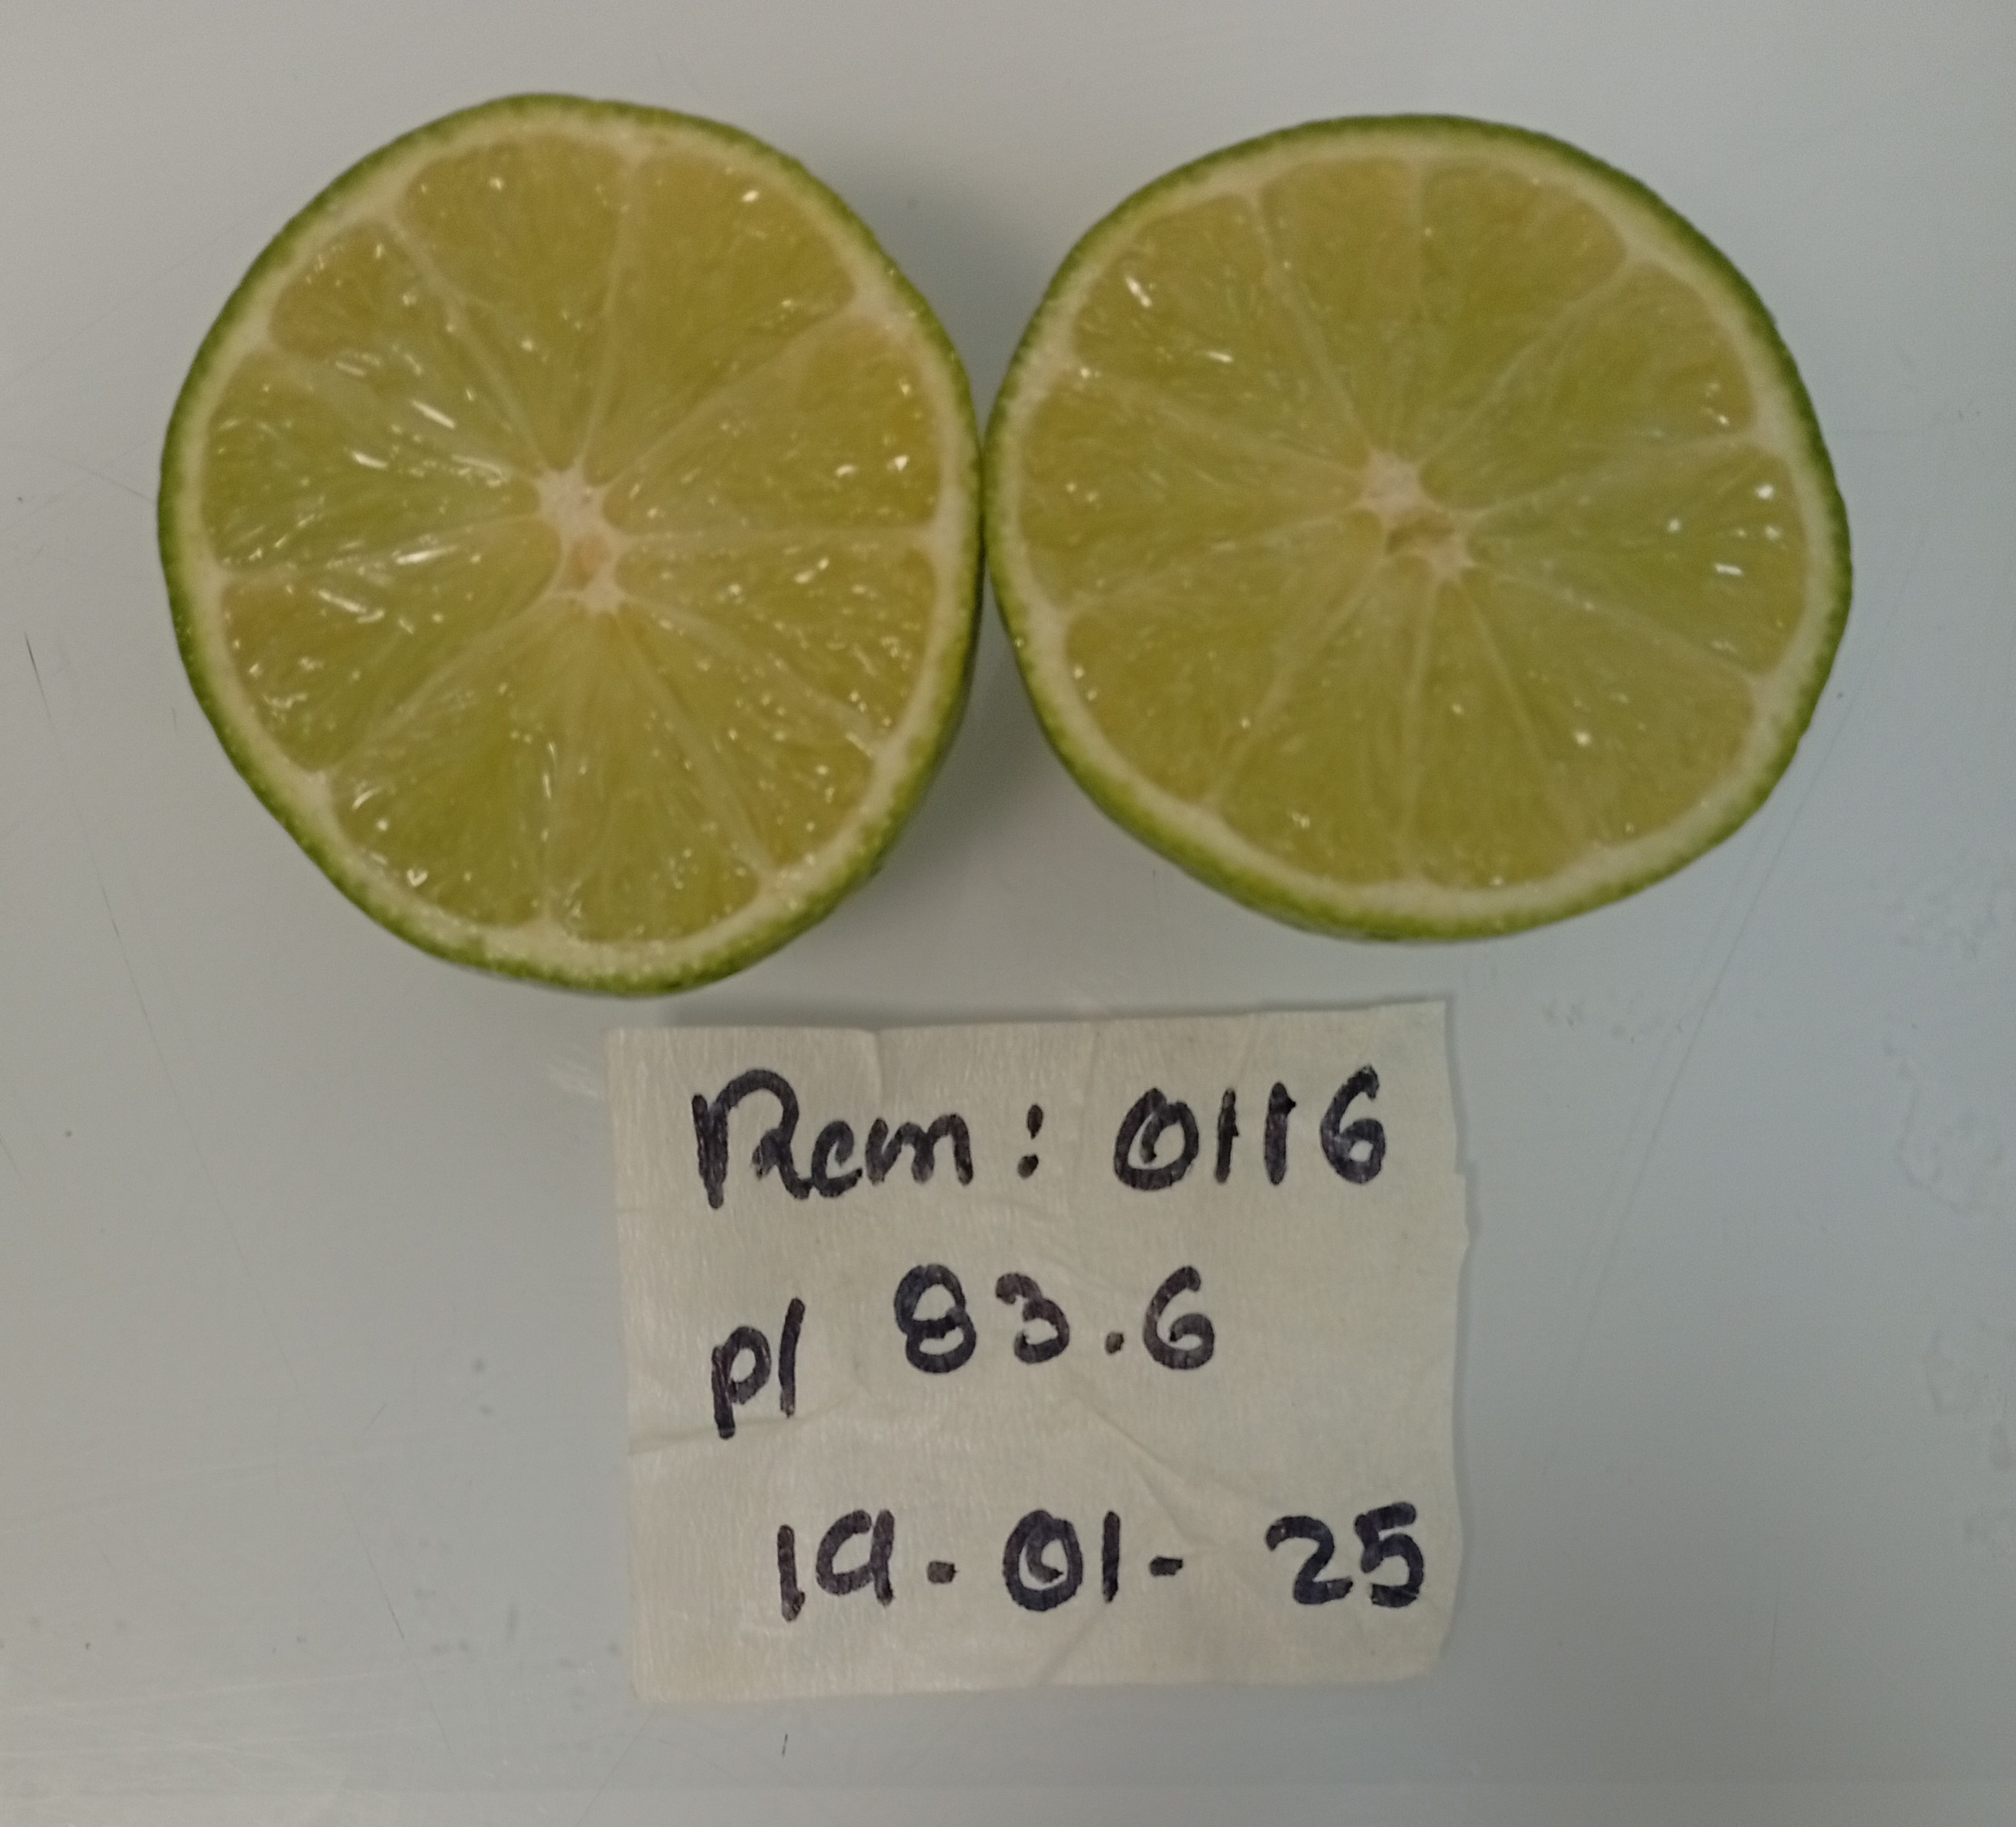 Rem: 0116
p/ 83.6
19-01-25